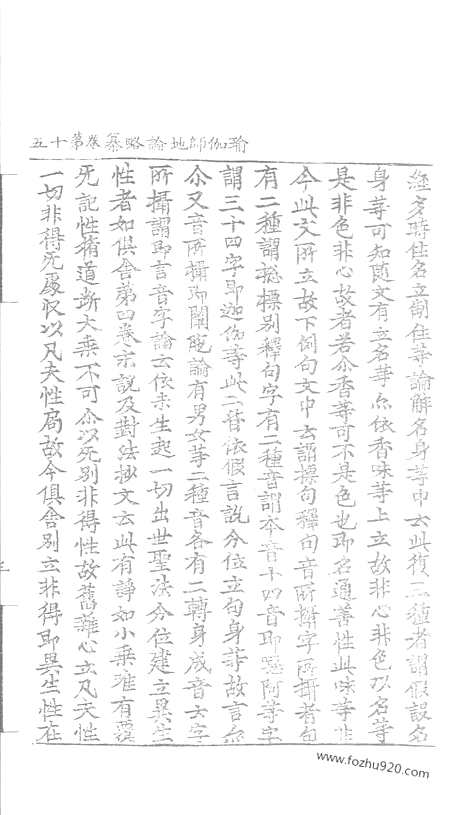 瑜伽師地論略纂卷第十五
經多時住名立制住等論解名身等中云此復二種者謂假設名
身等可知隨文有立名等亦依香味等上立故非心非色以名等
是非色非心故者若尒香等可不是色也即名通善性此味等非
今此文所立故下例句文中云謂標句釋句音所攝字所攝者句
有二種謂總標別釋句字有二種音謂本音十四音即惡阿等字
謂三十四字即迦佉等此二皆依假言說分位立句身等故言亦
尒又音所攝即聞陀論有男女等二種音各有二轉身成音云字
所攝謂即言音字論云依未生起一切出世聖法分位建立異生
性者如俱舍第四卷宗說及對法抄文云此有諍如小乘唯有覆
無記性脩道斷大乘不可尒以無別非得性故舊難心立凡夫性
一切非得無處収以凡夫性局故今俱舍別立非得即異生性在
www.fozhu920.com